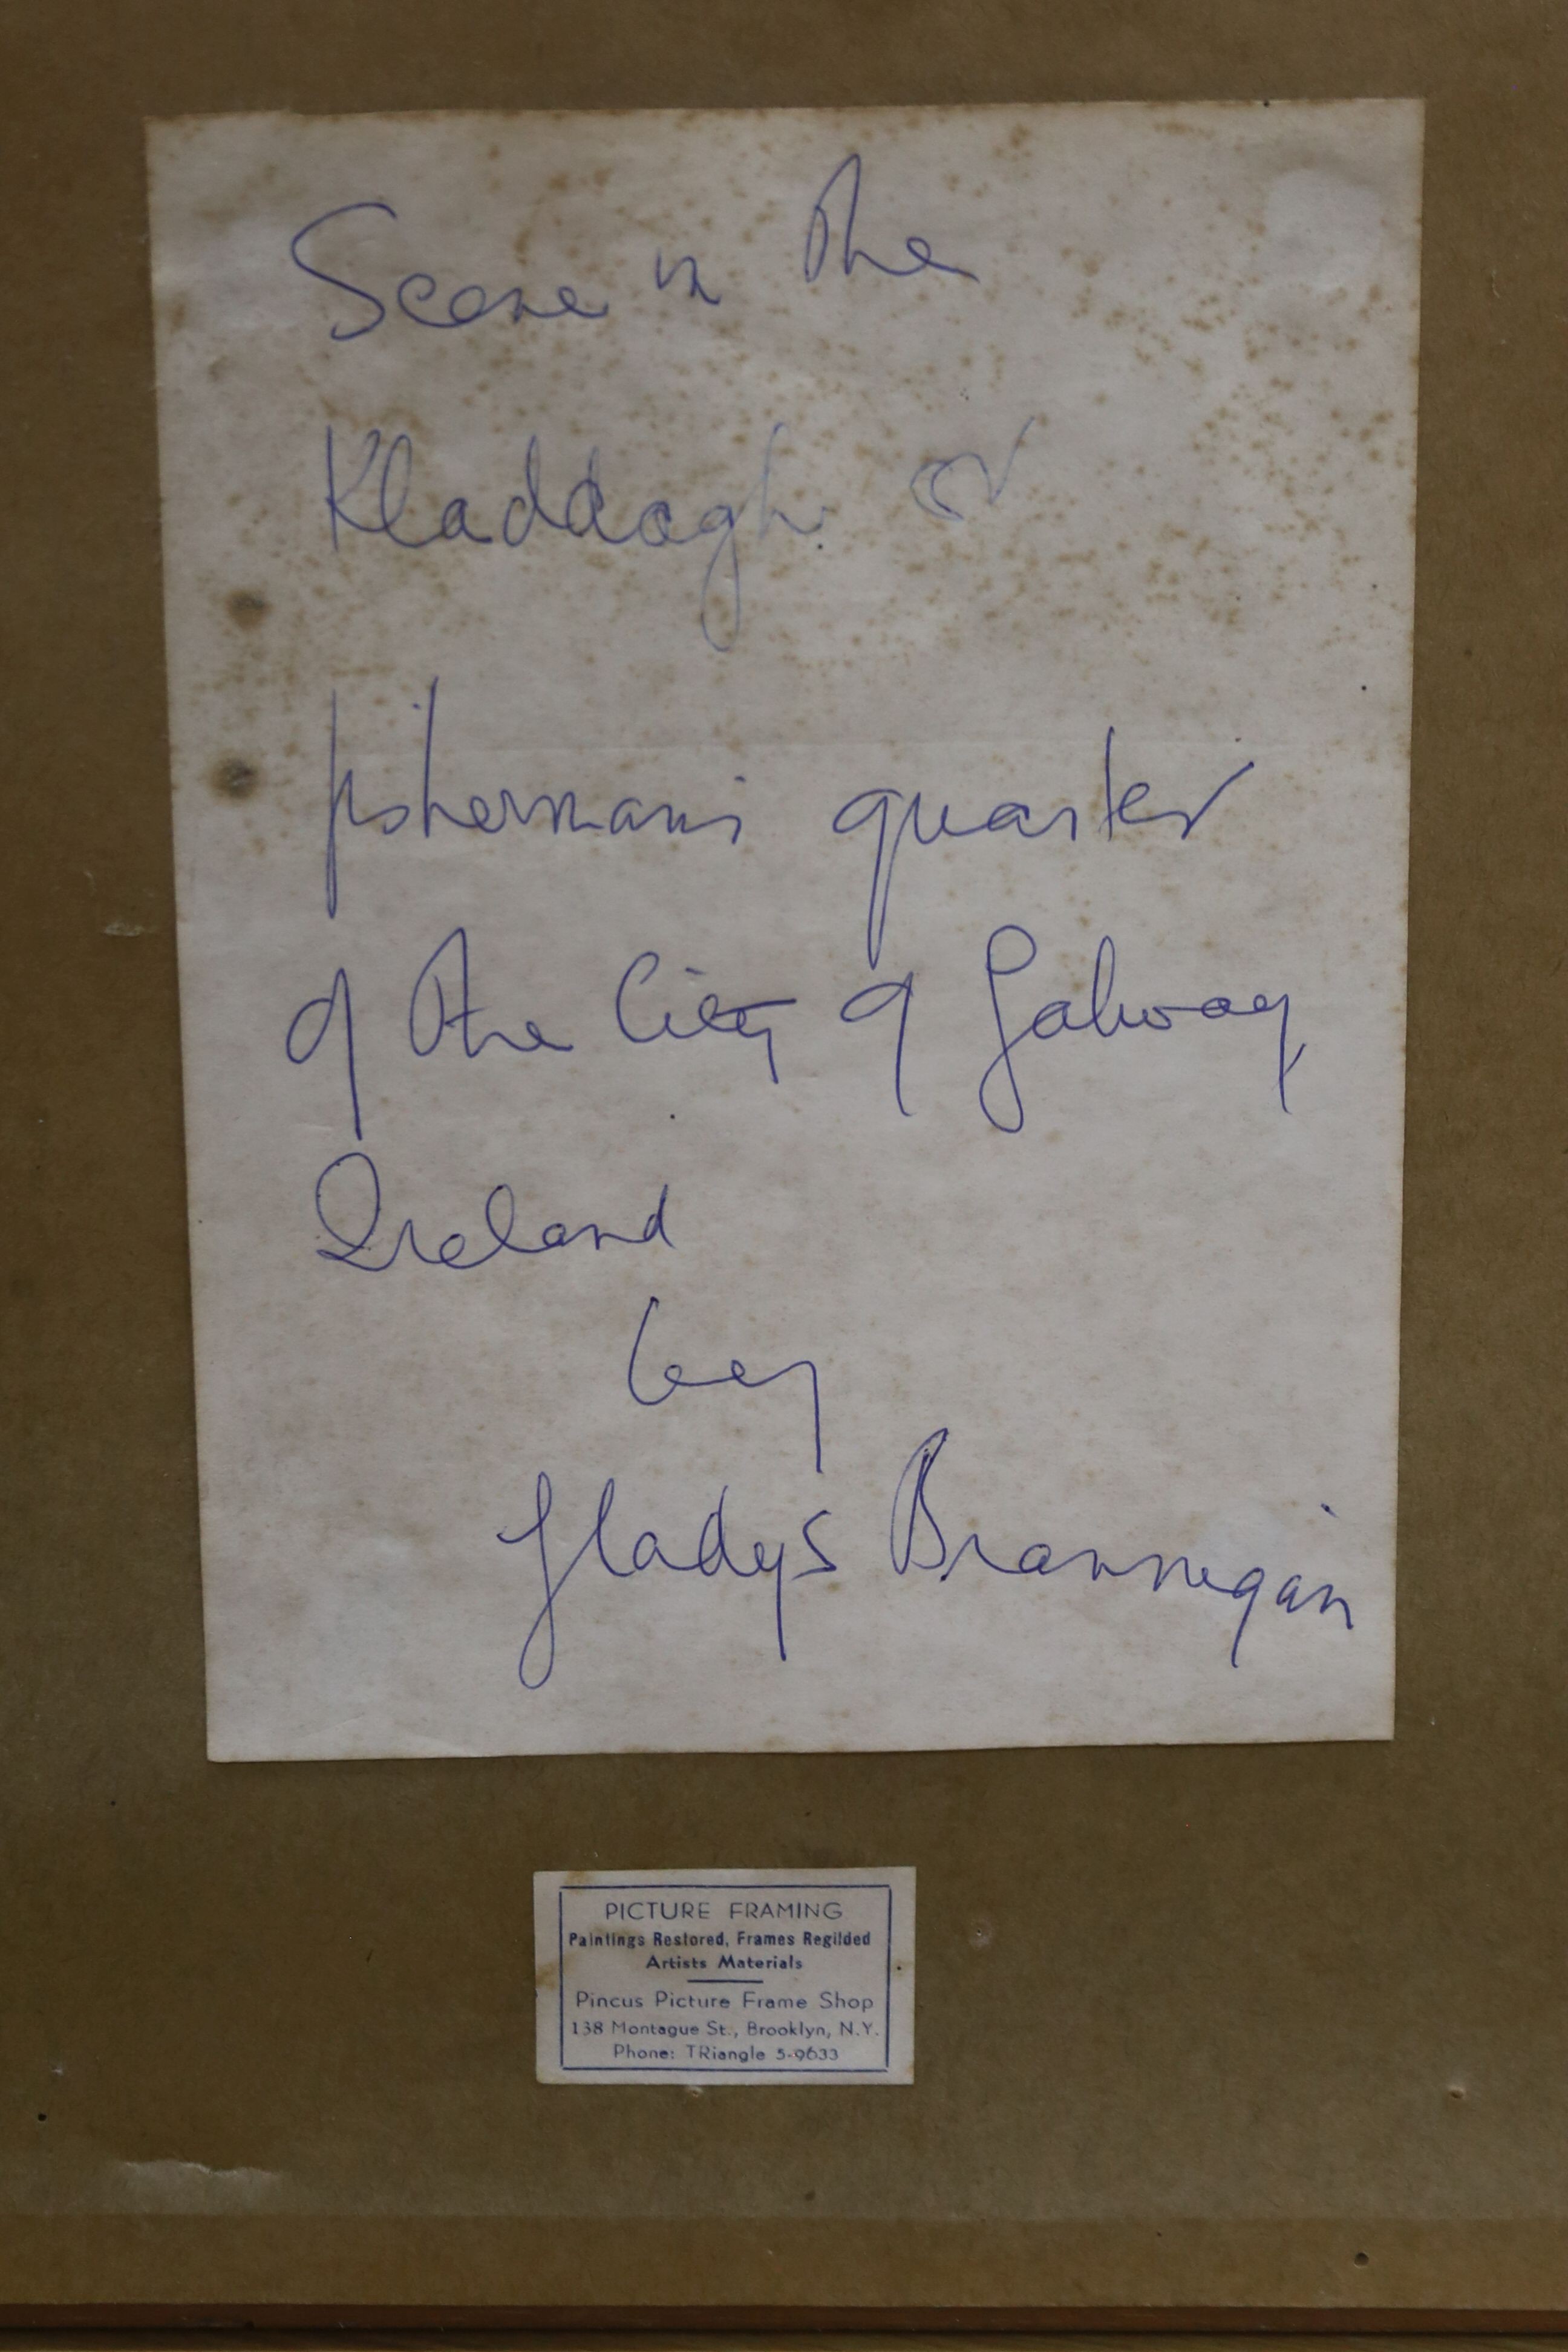 Scene in the
Kladdagh or
fishermans quarter
of the City of Galway,
Ireland
by
Gladys Brannegan
PICTURE FRAMING
Paintings Restored, Frames Regilded
Artists Materials
Pincus Picture Frame Shop
138 Montague St., Brooklyn, N.Y.
Phone: TRiangle 5-9633